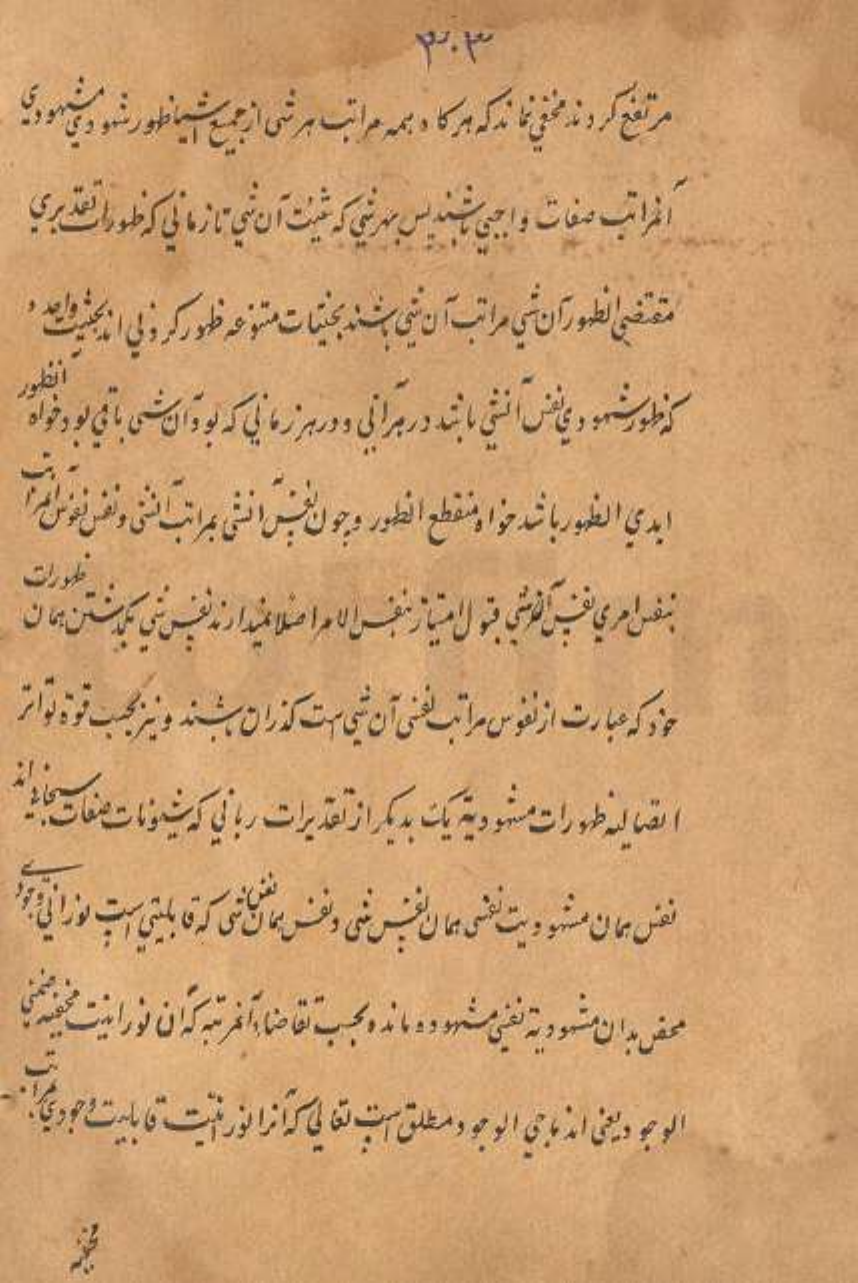 ۳۰۳
مرتفع کردند مخفی نماند که هرکاه همه مراتب هر شی از جمیع اشیا ظهور شهودی مشهودی
آنمراتب صفات واجبی باشند پس بهر شی که شیئت آن شی تا زمانی که ظهورات تقدیری
مقتضی الظهور آن شی مراتب آن شی باشند بحیثیات متنوعه ظهور کردنی اند بحیثیت واحد و
که ظهور شهودی نفس آنشی باشد در هر آنی و در هر زمانی که بود آن شی باقی بود خواه آنظهور
ابدی الظهور باشد خواه منقطع الظهور و چون نفس آنشی بمراتب آنشی و نفس نفوس آنمراتب
بنفس امری نفس آنشی قبول امتیاز بنفس الامر اصلا نمیدارند نفس شی بکذشتن همان ظهورات
خود که عبارت از نفوس مراتب نفسی آن شی است کذران باشند و نیز بحسب قوة تواتر
اتصالیه ظهورات مشهودیة یک بدیکر از تقدیرات ربانی که شیونات صفات سبحانی اند
نفس همان مشهودیت نفسی همان نفس شی و نفس همان نفس شی که قابلیتی است نورانی وجودی
محض بدان مشهودیة نفسی مشهوده مانده بحسب تقاضاء آنمرتبه که آن نورانیت مخفیه ضمنی
الوجود یعنی اند باجی الوجود مطلق است تعالی که آنرا نورانیت قابلیت وجودی مراتب
مخفیه